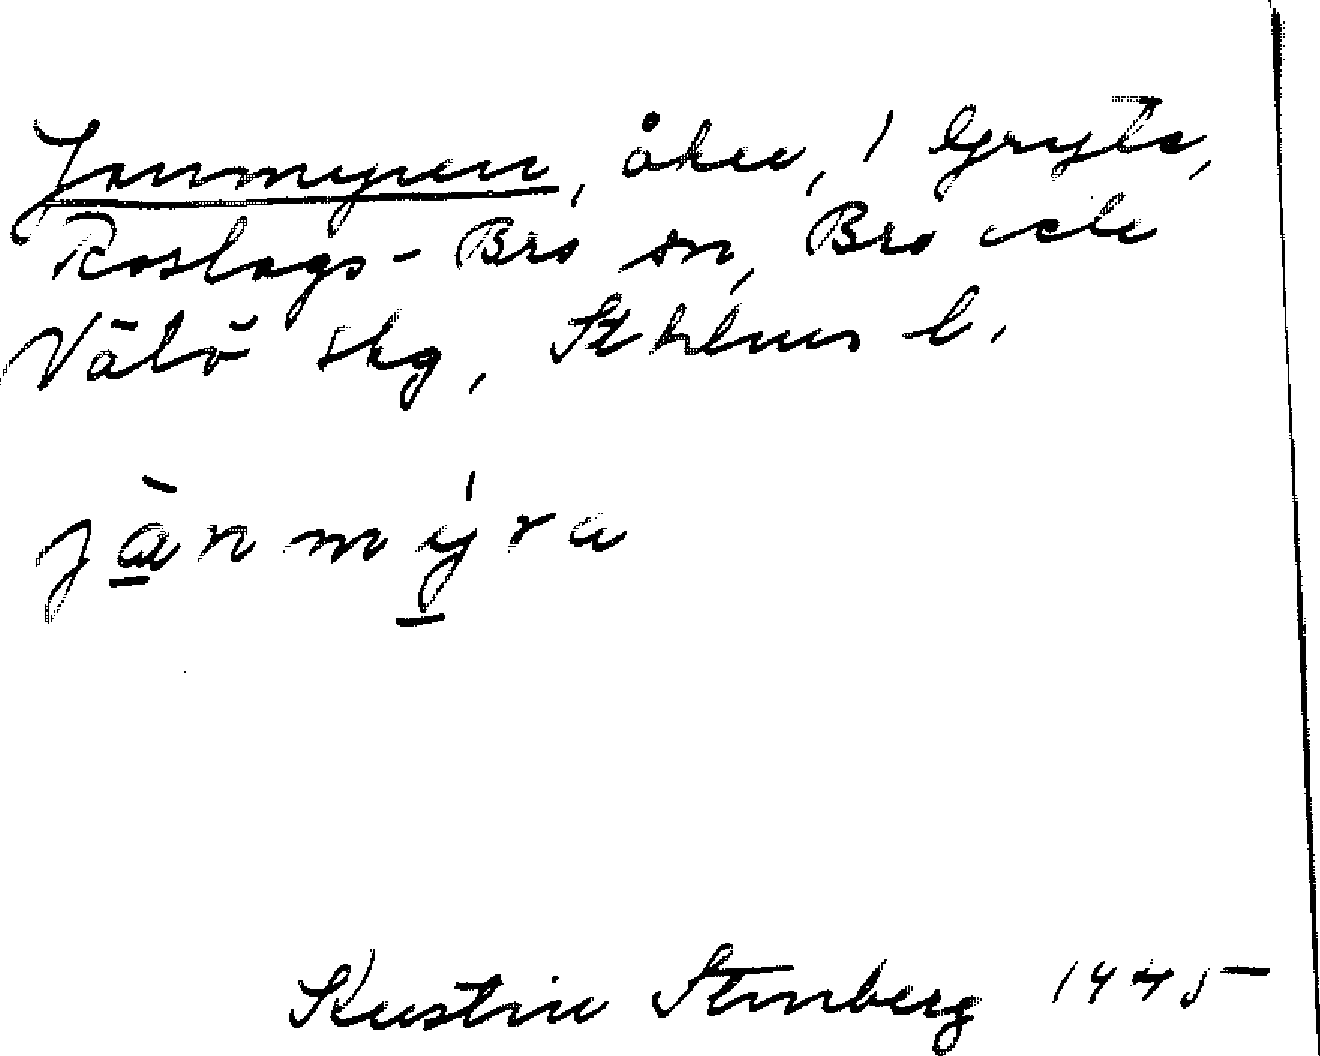 Janmyren, åker, 1 Gryta,
Roslags-Bro sn, Bro och
Vätö skg, Sthlms l.
jànmýra
Kerstin Stenberg 1945